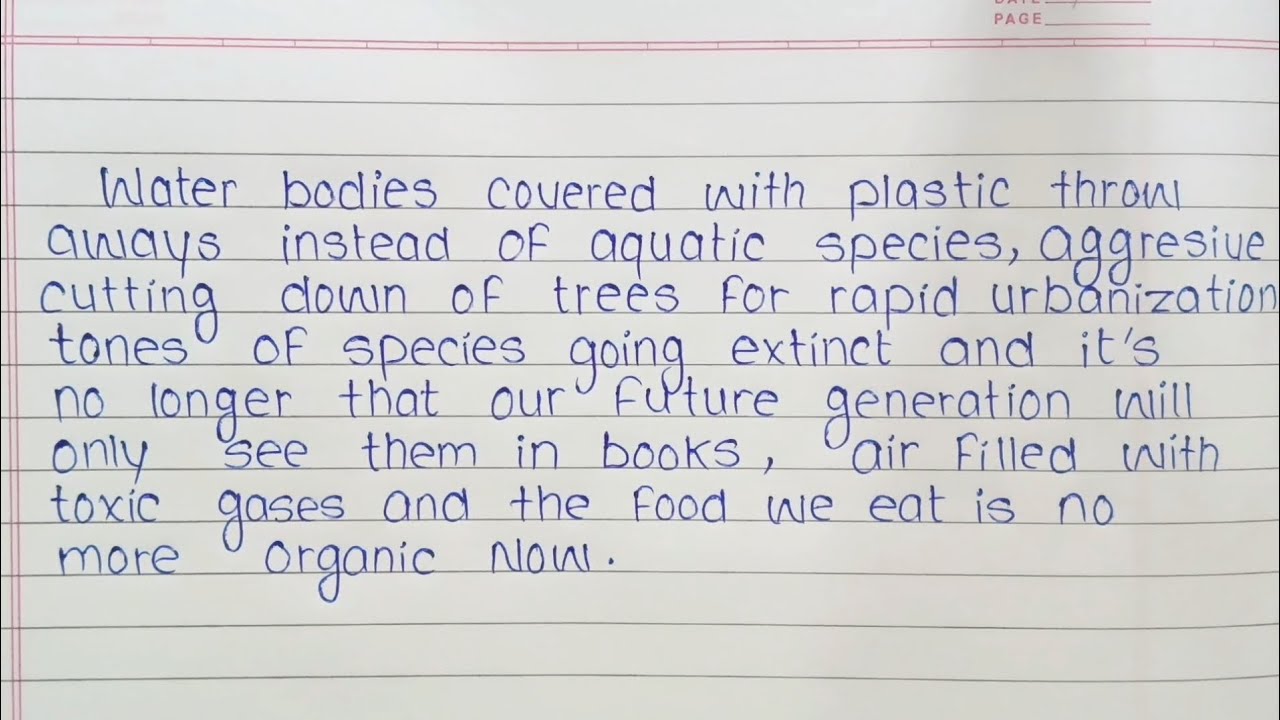 DATE
PAGE
Water bodies covered with plastic throw
aways instead of aquatic species, aggresive
cutting down of trees for rapid urbanization
tones of species going extinct and it's
no longer that our future generation will
only see them in books, air filled with
toxic gases and the food we eat is no
more organic Now.